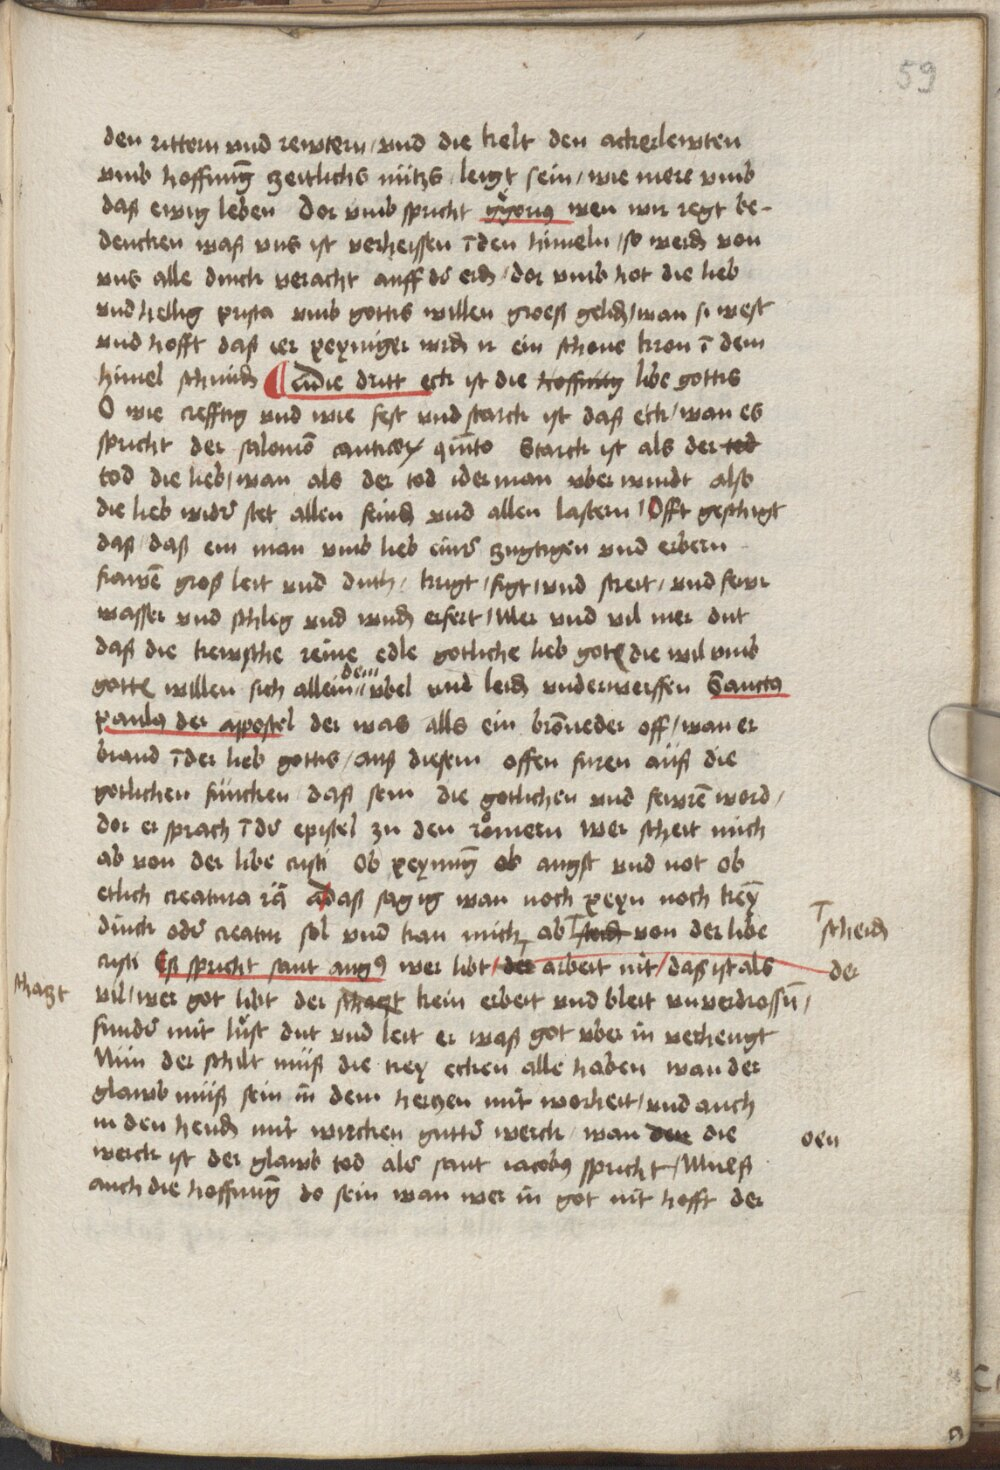 59
den rittern vnd rewtern / vnd die helt den ackerlewten
vmb hoffnūg zeitlichs nützs leigt sein / wie mere vmb
daß ewig leben Dor vmb spricht wen wir regt be-
dencken waß vns ist verheissen ī den himeln / so werdn von
vns alle dinck veracht auff der erdn / dor vmb hot die lieb
vnd heilig vmb gottis willen groess gelidn / wan si west
vnd hofft daß ier peyniger wirdn ir ein schone kron ī dem
himel schmidn ¶ die dritt eck ist die hoffnung libe gottis
O wie crefftig vnd wie fest vnd starck ist daß eck / wan es
spricht der salomō quīto Starck ist als der tod
tod die lieb / wan als der tod iderman vber windt also
die lieb wider stet allen feindn vnd allen lastern / Offt geschigt
daß / daß ein man vmb lieb einer zugtigen vnd erbern
frawē groß leit vnd duth / krigt / figt / vnd streit / vnd fewr
wasser vnd schleg vnd wundn erfert / Wer vnd vil mer dut
daß die kewsche reine edle gotliche lieb gotes die wil vmb
gottes willen sich allein dem vbel vnd leidn vnderwerffen Sanctus
paulus der apostel der was alls ein brōneder off / wan er
brand ī der lieb gottis / auß diesem offen furen auß die
gotlichen füncken daß sein die gotlichen vnd fewrē word /
dor er sprach ī der epistel zu den römern Wer scheit mich
ab von der libe cristi Ob peynūg ob angst vnd not ob
etlich creatura daß sag ig wan noch peyn noch keȳ
dinck oder creatur sol vnd kan mich ab von der libe
scheidn
cristi Eß spricht sant augus wer libt / der arbeit nit / daß ist als
der
schatzt
vil / wer got libt der schaczt kein erbeit vnd bleit vnverdrossn̄ /
sunder mit lust dut vnd leit er waß got vber in verhengt
Nun der schilt muß die trey ecken alle haben wan der
glawb muß sein in dem hertzen mit worheit / vnd auch
in den hendn mit wircken gutter werck / wan den die
oen
werck ist der glawb tod als sant iacobus spricht / Mueß
auch die hoffnūg do sein wan wer in got nit hofft der